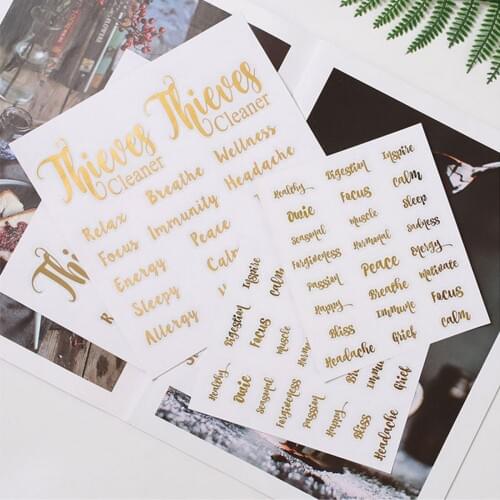 Thieves
Cleaner
Thieves
Cleaner
Relax
Breathe
Wellness
Focus
Immunity
Headache
Energy
Peace
Sleepy
Calm
Allergy
Healthy
Digestion
Inspire
Ouie
Focus
Calm
Seasonal
Muscle
Sleep
Forgiveness
Hormonal
Sadness
Passion
Peace
Energy
Happy
Breathe
Motivate
Bliss
Immune
Focus
Headache
Grief
Calm
Digestion
Inspire
Focus
Calm
Muscle
Healthy
Ouie
Seasonal
Forgiveness
Passion
Happy
Bliss
Headache
Grief